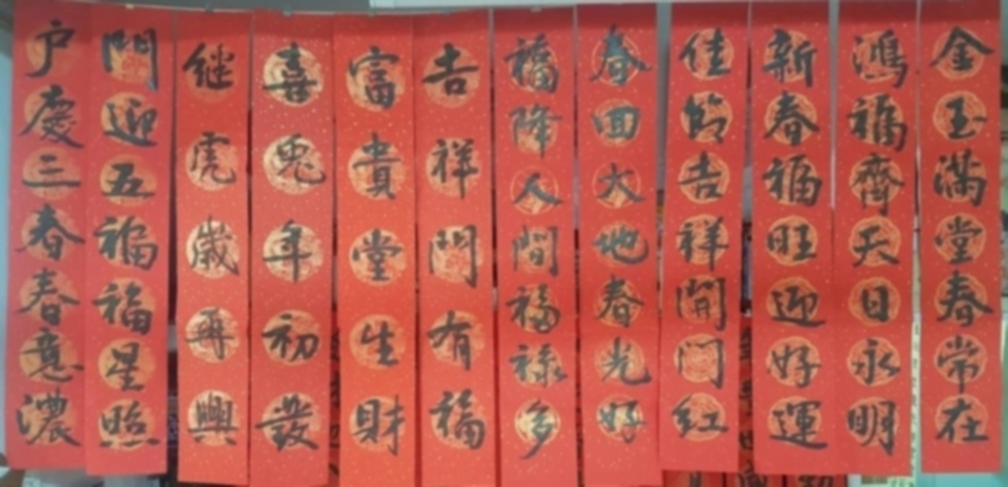 金玉滿堂春常在
鴻福齊天日永明
新春福旺迎好運
佳節吉祥開门红
春回大地春光好
福降人間福禄多
吉祥門有福
富貴堂生財
喜兔年初發
继虎歲再興
門迎五福福星照
户慶三春春意濃